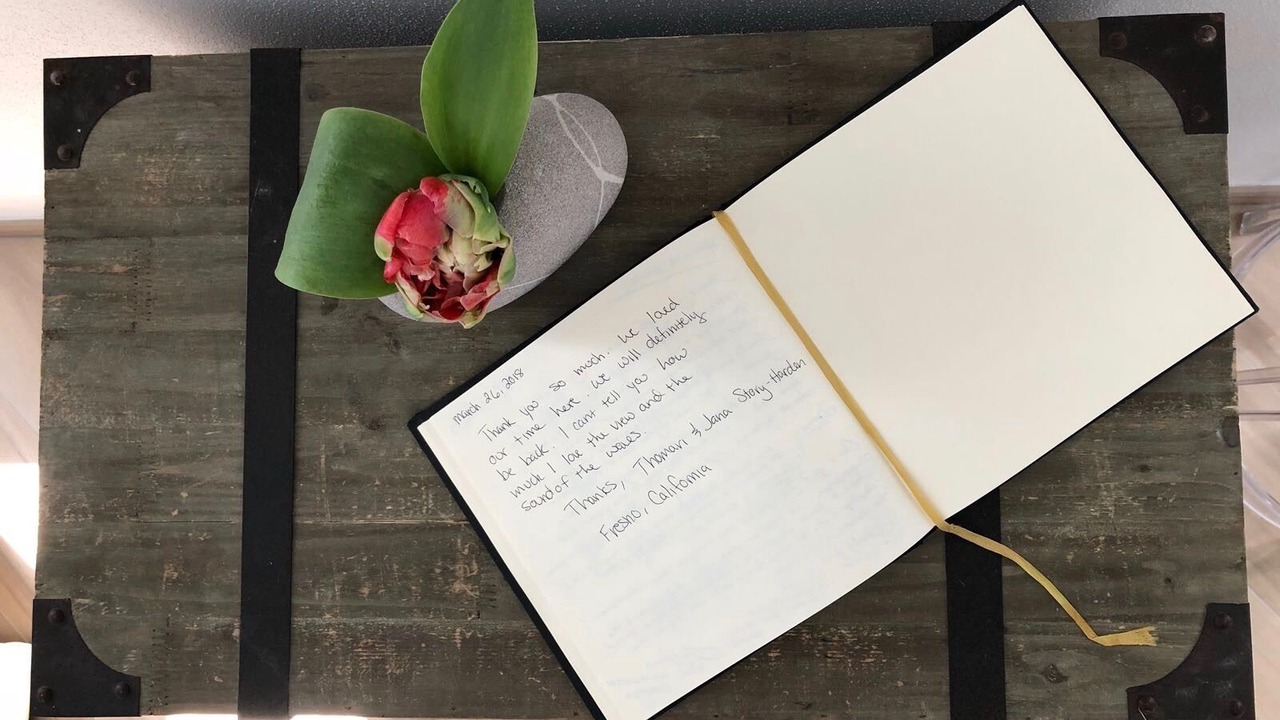 march 26, 2018
Thank you so much. We loved
our time here. We will definitely
be back. I cant tell you how
much I love the view and the
sound of the waves.
Thanks, & Jana Story-Harden
Fresno, California